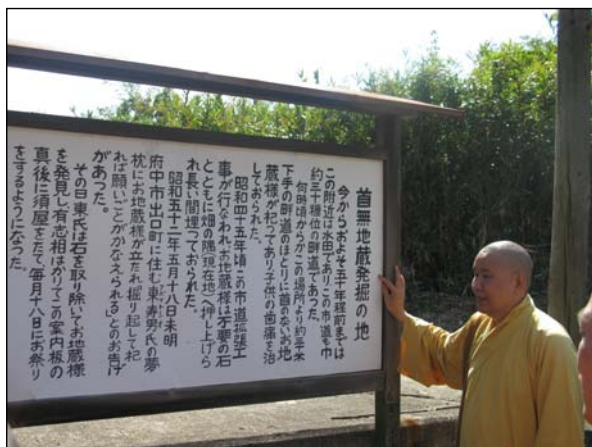 首無地蔵発掘の地
今からおよそ五十年程前までは
この附近は水田でありこの市道も巾
約三十糎位の畔道であった。
何時頃からかこの場所より約三十米
下手の畔道のほとりに首のないお地
蔵様が祀ってあり子供の歯痛を治
しておられた。
昭和四十五年頃この市道拡張工
事が行なわれお地蔵様は不要の石
とともに畑の隅、現在地へ押し上げら
れ長い間埋っておられた。
昭和五十二年五月十八日未明
府中市出口町に住む東寿男氏の夢
枕にお地蔵様が立たれ「掘り起して祀
れば願いごとがかなえられる」とのお告げ
があった。
その日東氏は石を取り除いてお地蔵様
を発見し有志相はかりてこの案内板の
真後に須屋をたて毎月十八日にお祭り
をするようになった。